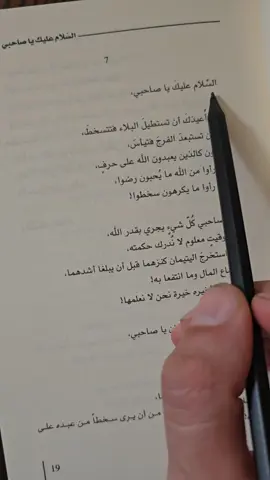 السَّلام عليك يا صاحبي
7
السَّلام عليكَ يا صاحبي،
أُعيذكَ أن تستطيلَ البلاء فتتسخطَ،
تستبعدَ الفرجَ فتيأسَ،
كالذين يعبدون الله على حرفٍ
رأوا من الله ما يُحبون رضوا،
رأوا ما يكرهون سخطوا!
صاحبي كُلّ شيءٍ يجري بقدر الله،
معلوم لا نُدرك حكمته،
اليتيمان كنزهما قبل أن يبلغا أشدهما،
المال وما انتفعا به!
خيرة نحن لا نعلمها!
يا صاحبي،
من أن يرى سخطاً من عبده على
19